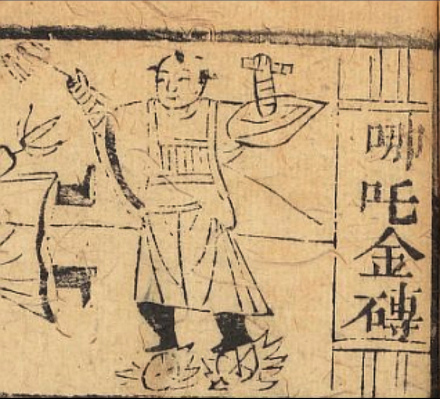 哪吒金磚